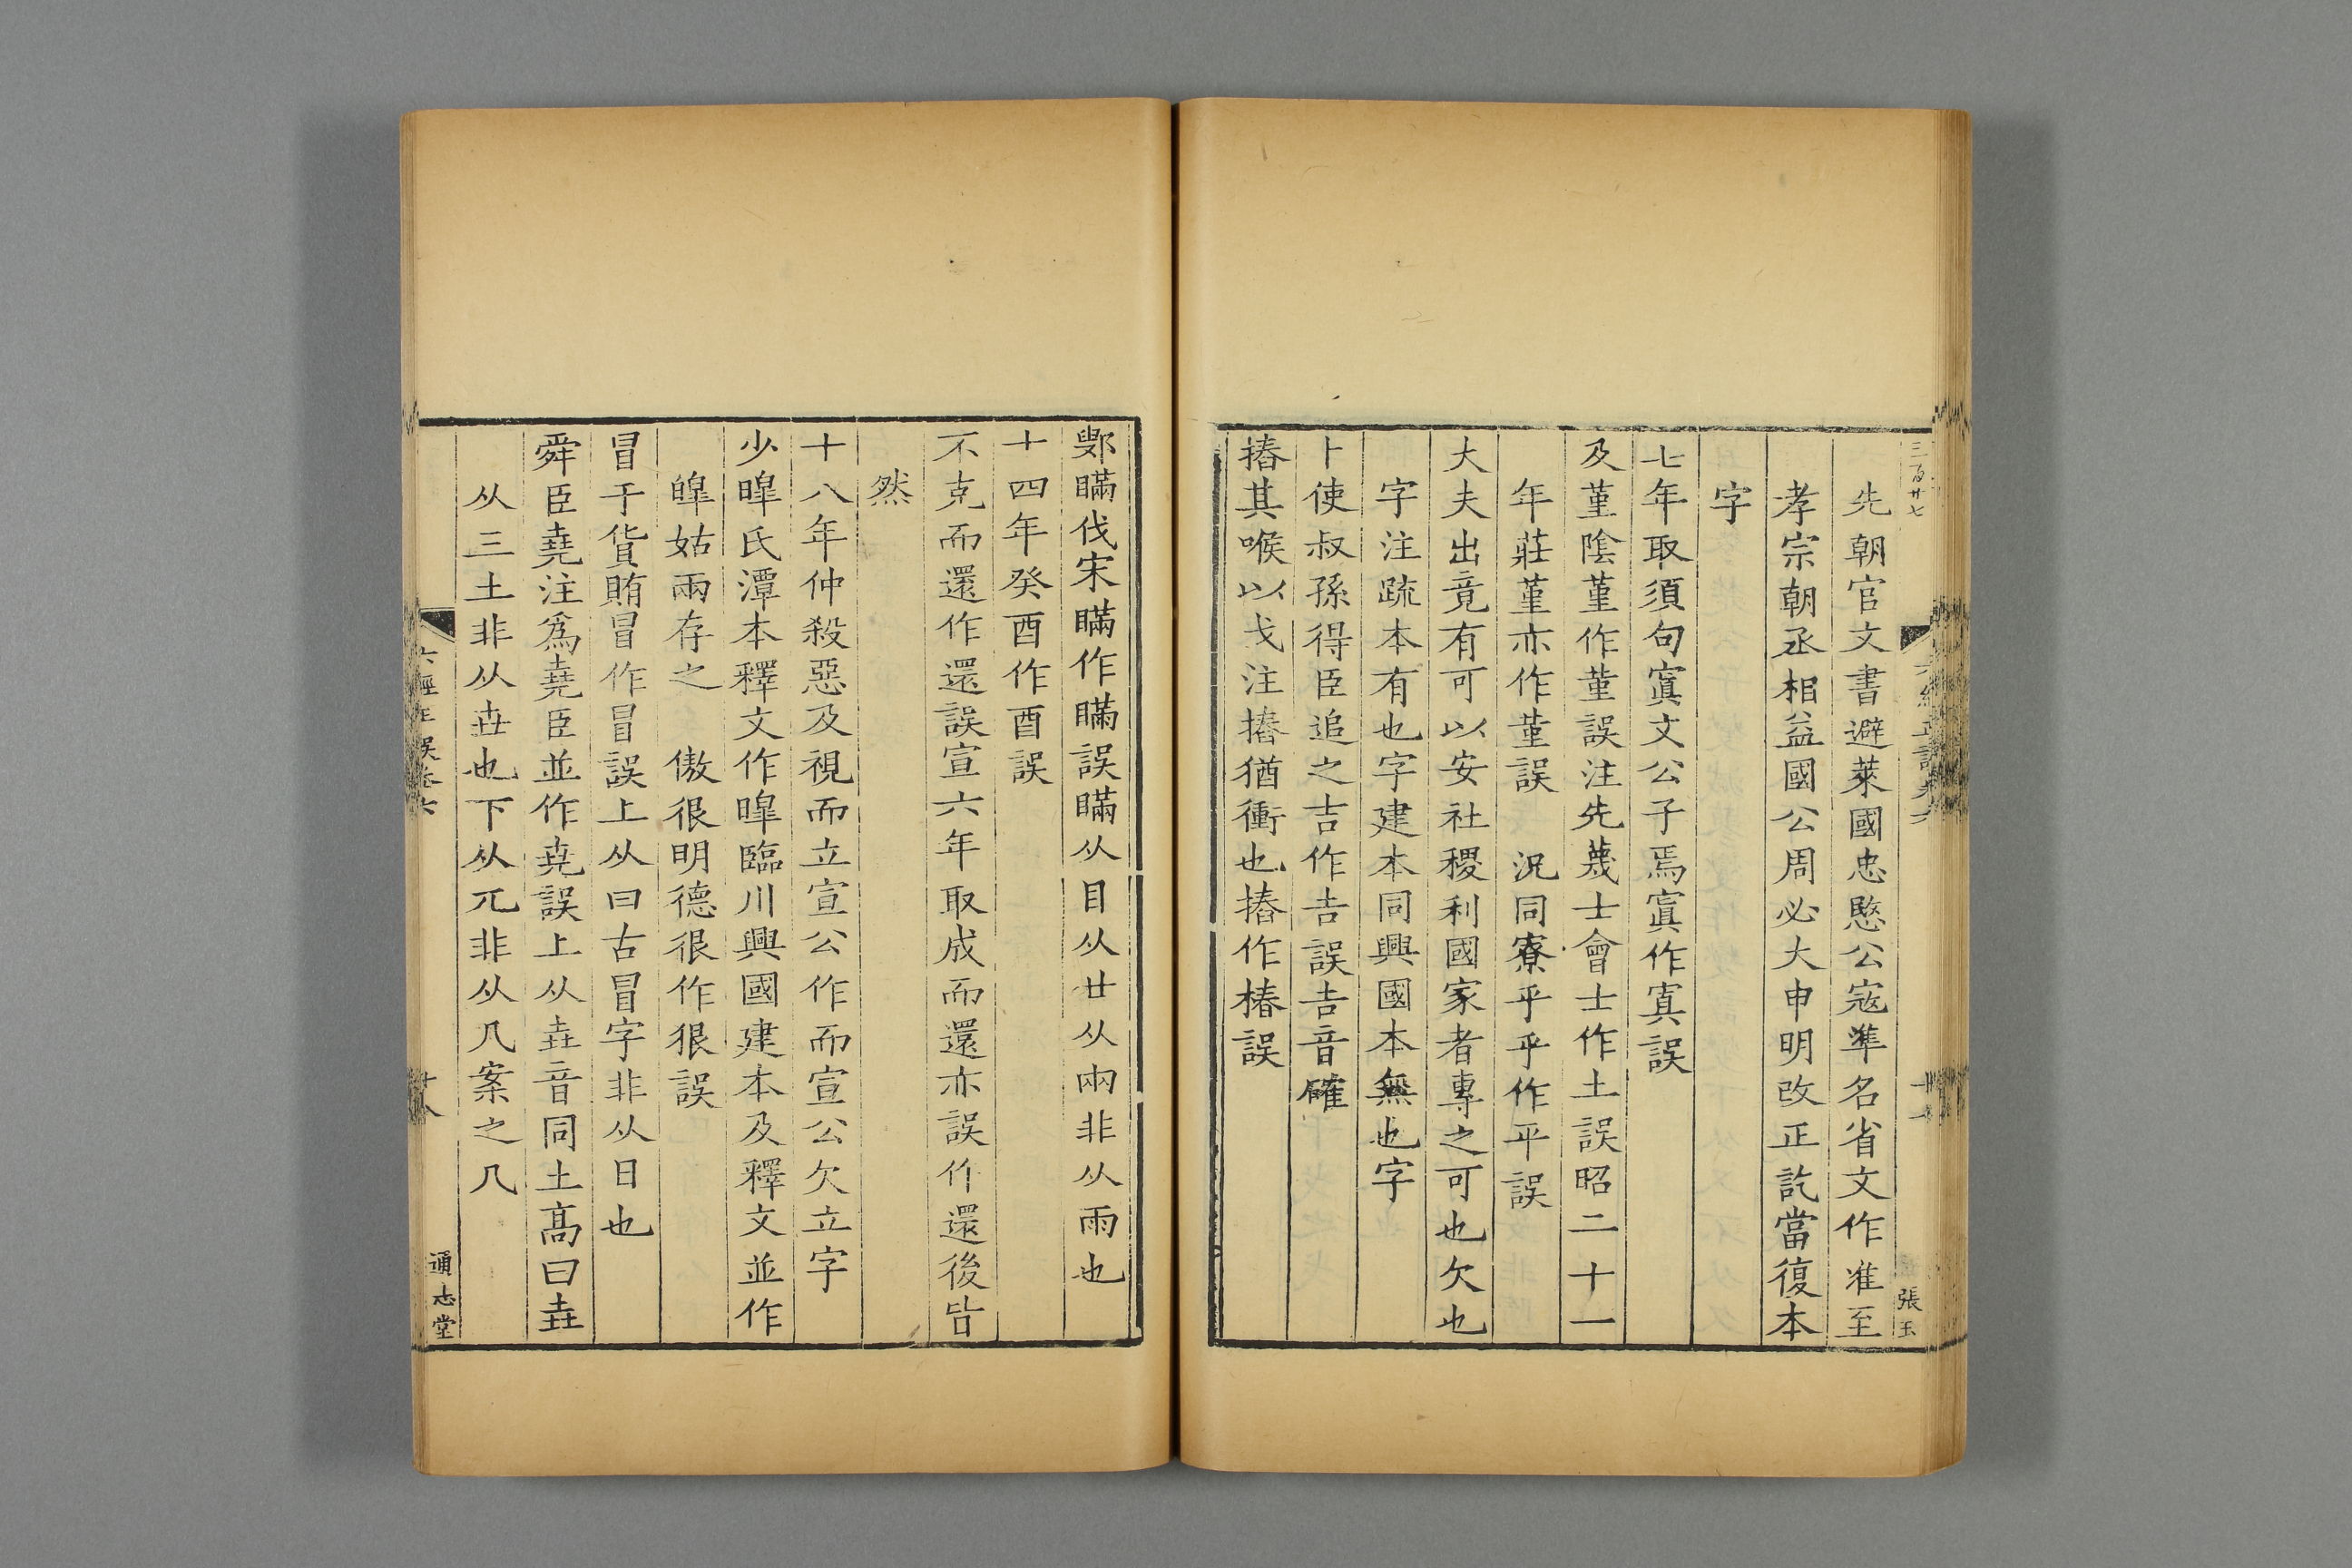 三百廿七
六經正誤卷六
十七
張玉
先朝官文書避萊國忠愍公寇準名省文作准至
孝宗朝丞相益國公周必大申明改正訖當復本
字
七年取須句寘文公子焉寘作寘誤
及堇陰堇作菫誤注先蔑士會士作土誤昭二十一
年莊堇亦作菫誤 況同寮乎乎作平誤
大夫出竟有可以安社稷利國家者專之可也欠也
字注疏本有也字建本同興國本無也字
卜使叔孫得臣追之吉作吉誤吉音確
摏其喉以戈注摏猶衝也摏作椿誤
鄋瞞伐宋瞞作瞞誤瞞从目从廿从兩非从雨也
十四年癸酉作酉誤
不克而還作還誤宣六年取成而還亦誤作還後皆
然
十八年仲殺惡及視而立宣公作而宣公欠立字
少皞氏潭本釋文作皞臨川興國建本及釋文並作
皞姑兩存之 傲很明德很作狠誤
冒于貨賄冒作冒誤上从曰古冒字非从日也
舜臣堯注為堯臣並作堯誤上从垚音同土高曰垚
从三土非从垚也下从兀非从几案之几
六經正誤卷六
十八
通志堂